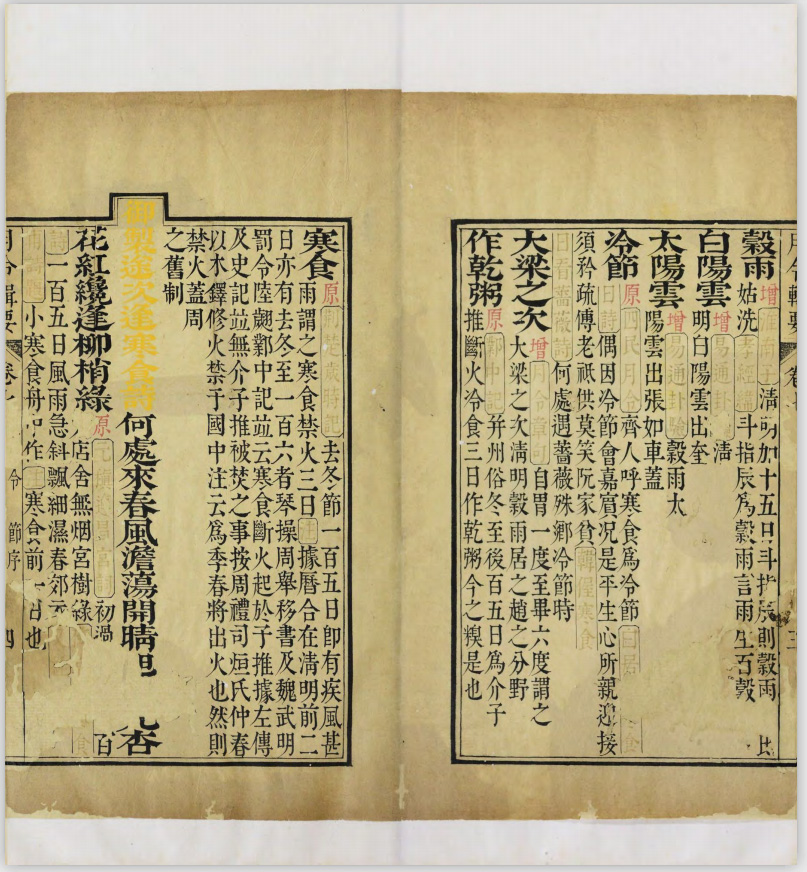 月令輯要 卷 三
穀雨 增 清明加十五日斗指辰則穀雨 比
姑洗 斗指辰爲穀雨言雨生百穀
白陽雲 增 易通卦驗 清
明白陽雲出奎
太陽雲 增 易通卦驗 穀雨太
陽雲出張如車蓋
冷節 原 四民月令 齊人呼寒食爲冷節 白居 食
日詩 偶因冷節會嘉賓况是平生心所親迎接
須矜疏傅老祗供莫笑阮家貧 韓偓寒食
日看薔薇詩 何處遇薔薇殊鄉冷節時
大梁之次 增 月令章句 自胃一度至畢六度謂之
大梁之次清明穀雨居之趙之分野
作乾粥 原 鄴中記 并州俗冬至後百五日爲介子
推斷火冷食三日作乾粥今之糗是也
寒食 原 荆楚歲時記 去冬節一百五日卽有疾風甚
雨謂之寒食禁火三日 注 據曆合在清明前二
日亦有去冬至一百六者琴操周舉移書及魏武明
罰令陸翽鄴中記竝云寒食斷火起於子推據左傳
及史記竝無介子推被焚之事按周禮司烜氏仲春
以木鐸修火禁于國中注云爲季春將出火也然則
禁火蓋周
之舊制
御製途次逢寒食詩 何處來春風澹蕩開晴 杏
花紅纔逢柳梢綠 原 初過
店舍無烟宮樹綠 百
一百五日風雨急斜飄細濕春郊
小寒食舟中作 注 寒食前一日也
月令輯要 卷 令 節序 四